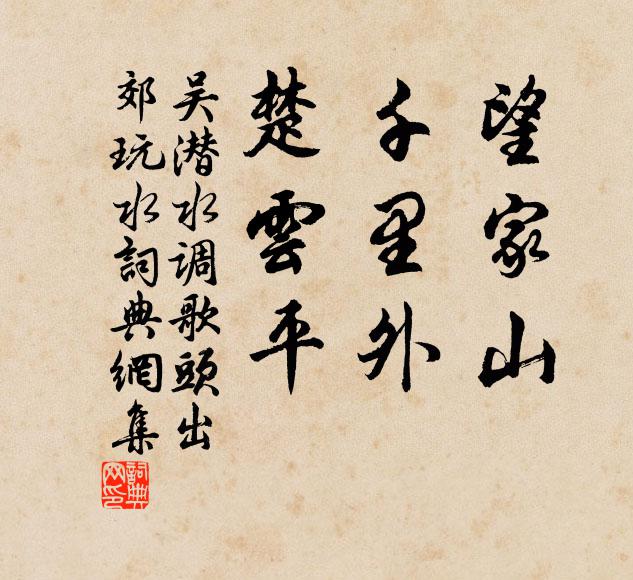 望家山
千里外
楚雲平
吴潜水调歌頭出
郊玩水詞典網集
詞典网印